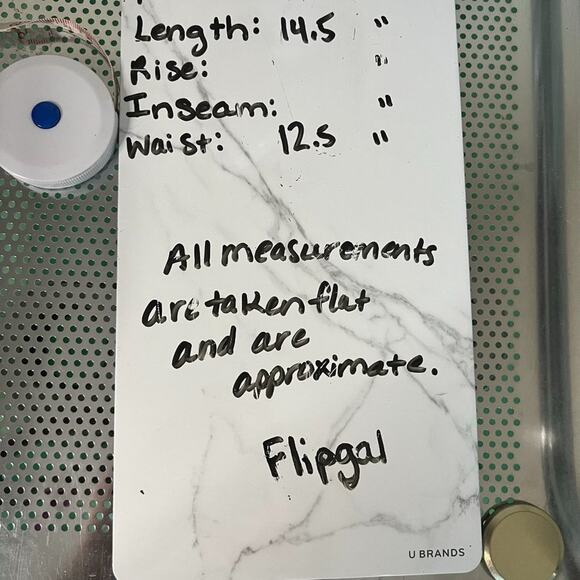 Length: 14.5 "
Rise: "
Inseam: "
Waist: 12.5 "
All measurements
are taken flat
and are
approximate.
Flipgal
U BRANDS